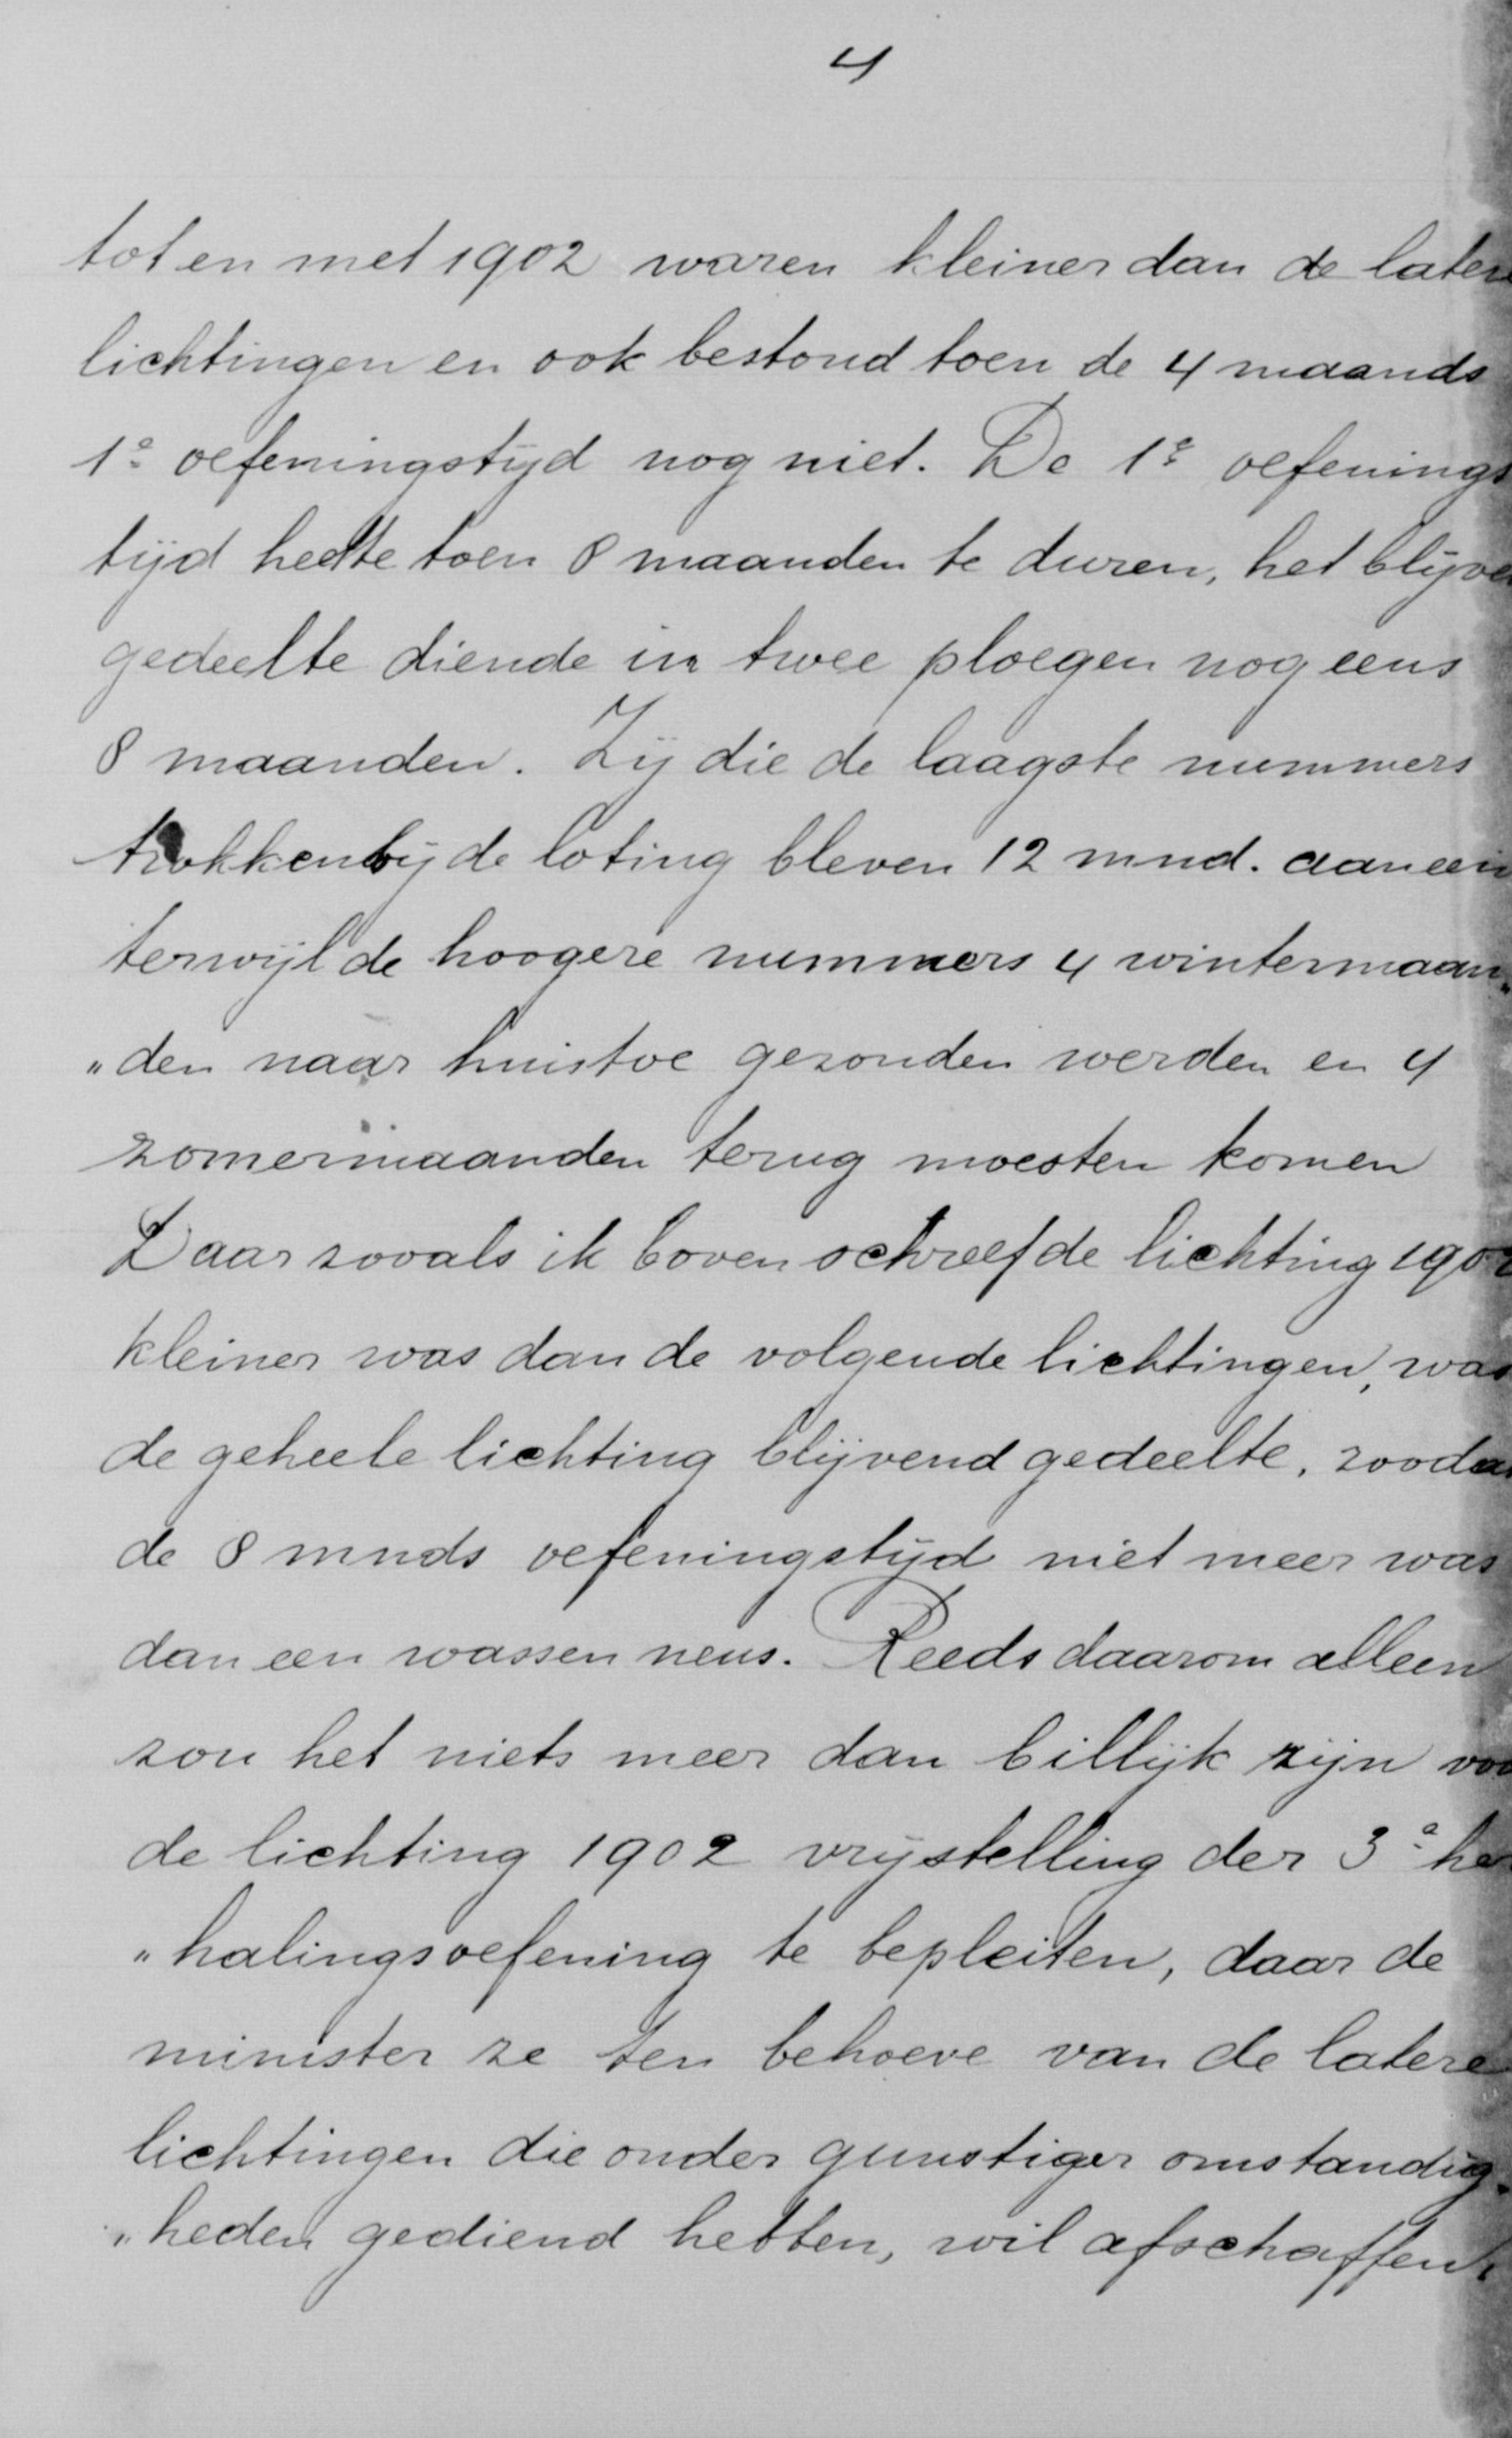 4
tot en met 1902 waren kleiner dan de latere
lichtingen en ook bestond toen de 4 maands
1e oefeningstijd nog niet. De 1e oefenings
tijd heette toen 8 maanden te duren, het blijve
gedeelte diende in twee ploegen nog eens
8 maanden. Zij die de laagste nummers
trokken bij de loting bleven 12 mnd. aaneen
terwijl de hoogere nummers 4 wintermaan„
„den naar huistoe gezonden werden en 4
zomermaanden terug moesten komen
Daar zooals ik boven schreef de lichting 1902
kleiner was dan de volgende lichtingen, was
de geheele lichting blijvend gedeelte, zooda
de 8 mnds oefeningstijd niet meer was
dan een wassen neus. Reeds daarom alleen
zou het niets meer dan billijk zijn voo
de lichting 1902 vrijstelling der 3e her
„halingsoefening te bepleiten, daar de
minister ze ten behoeve van de latere
lichtingen die onder gunstiger omstandig„
„heden gediend hebben, wil afschaffen.